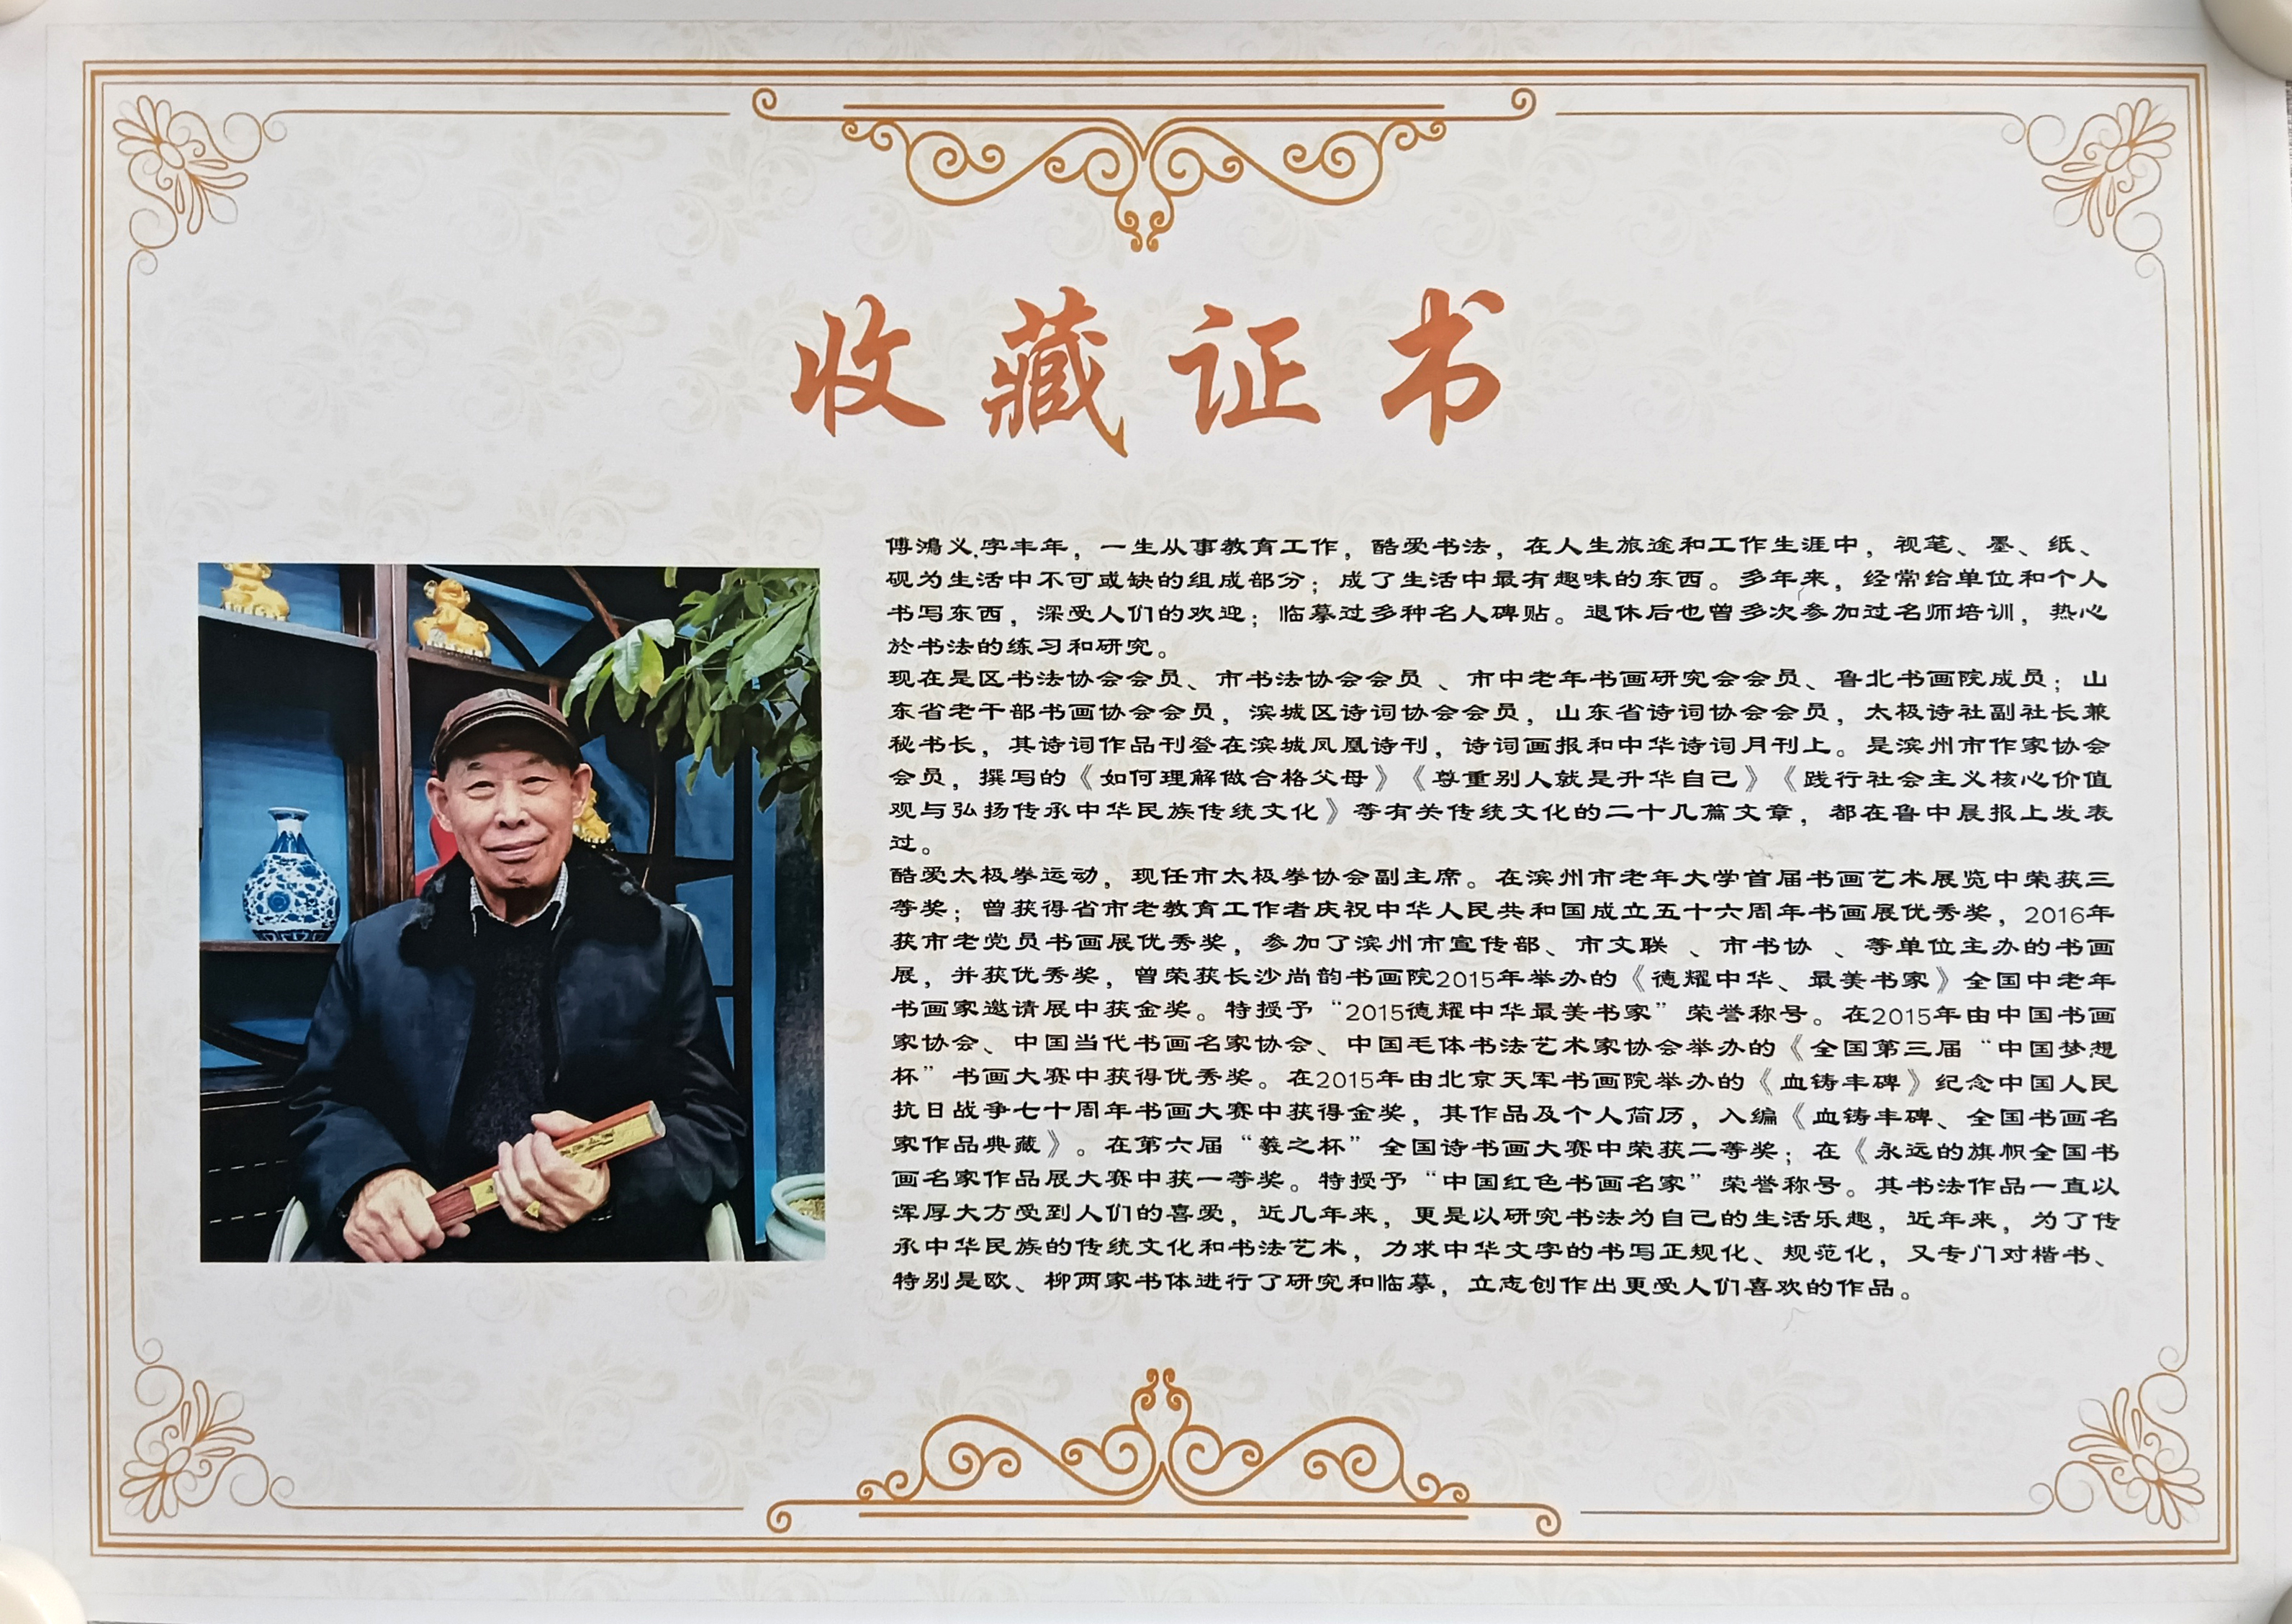 收藏证书
傅鸿义,字丰年，一生从事教育工作，酷爱书法，在人生旅途和工作生涯中，视笔、墨、纸、
砚为生活中不可或缺的组成部分；成了生活中最有趣味的东西。多年来，经常给单位和个人
书写东西，深受人们的欢迎；临摹过多种名人碑贴。退休后也曾多次参加过名师培训，热心
於书法的练习和研究。
现在是区书法协会会员、市书法协会会员 、市中老年书画研究会会员、鲁北书画院成员；山
东省老干部书画协会会员，滨城区诗词协会会员，山东省诗词协会会员，太极诗社副社长兼
秘书长，其诗词作品刊登在滨城凤凰诗刊，诗词画报和中华诗词月刊上。是滨州市作家协会
会员，撰写的《如何理解做合格父母》《尊重别人就是升华自己》《践行社会主义核心价值
观与弘扬传承中华民族传统文化》等有关传统文化的二十几篇文章，都在鲁中晨报上发表
过。
酷爱太极拳运动，现任市太极拳协会副主席。在滨州市老年大学首届书画艺术展览中荣获三
等奖；曾获得省市老教育工作者庆祝中华人民共和国成立五十六周年书画展优秀奖，2016年
获市老党员书画展优秀奖，参加了滨州市宣传部、市文联 、市书协 、等单位主办的书画
展，并获优秀奖，曾荣获长沙尚韵书画院2015年举办的《德耀中华、最美书家》全国中老年
书画家邀请展中获金奖。特授予“2015德耀中华最美书家”荣誉称号。在2015年由中国书画
家协会、中国当代书画名家协会、中国毛体书法艺术家协会举办的《全国第三届“中国梦想
杯”书画大赛中获得优秀奖。在2015年由北京天军书画院举办的《血铸丰碑》纪念中国人民
抗日战争七十周年书画大赛中获得金奖，其作品及个人简历，入编《血铸丰碑、全国书画名
家作品典藏》。在第六届“羲之杯”全国诗书画大赛中荣获二等奖；在《永远的旗帜全国书
画名家作品展大赛中获一等奖。特授予“中国红色书画名家”荣誉称号。其书法作品一直以
浑厚大方受到人们的喜爱，近几年来，更是以研究书法为自己的生活乐趣，近年来，为了传
承中华民族的传统文化和书法艺术，力求中华文字的书写正规化、规范化，又专门对楷书、
特别是欧、柳两家书体进行了研究和临摹，立志创作出更受人们喜欢的作品。